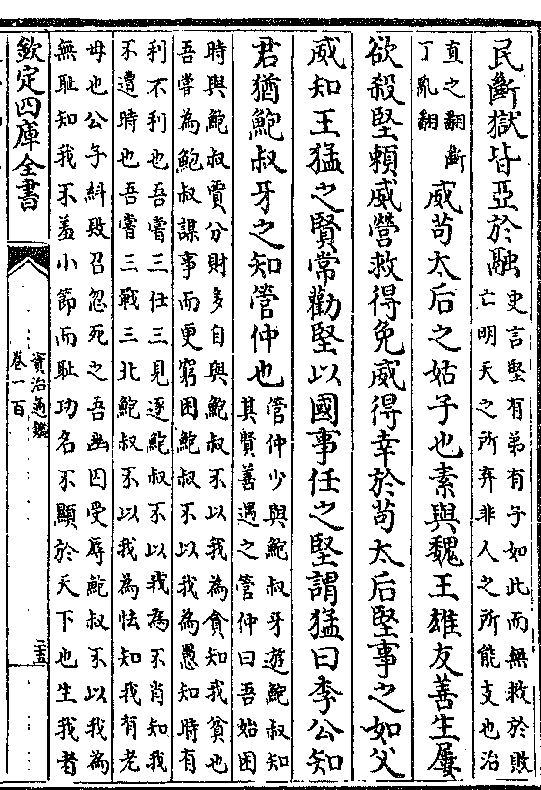 民斷獄皆亞於融
史言堅有弟有子如此而無救於敗
亡明天之所弃非人之所能支也治
直之翻斷
丁亂翻
威苟太后之姑子也素與魏王雄友善生屢
欲殺堅頼威營救得免威得幸於苟太后堅事之如父
威知王猛之賢常勸堅以國事任之堅謂猛曰李公知
君猶鮑叔牙之知管仲也
管仲少與鮑叔牙遊鮑叔知
其賢善遇之管仲曰吾始困
時與鮑叔賈分財多自與鮑叔不以我為貪知我貧也
吾嘗為鮑叔謀事而更窮困鮑叔不以我為愚知時有
利不利也吾嘗三仕三見逐鮑叔不以我為不肖知我
不遭時也吾嘗三戰三北鮑叔不以我為怯知我有老
母也公子糾敗召忽死之吾幽囚受辱鮑叔不以我為
無耻知我不羞小節而耻功名不顯於天下也生我者
欽定四庫全書
資治通鑑
卷一百